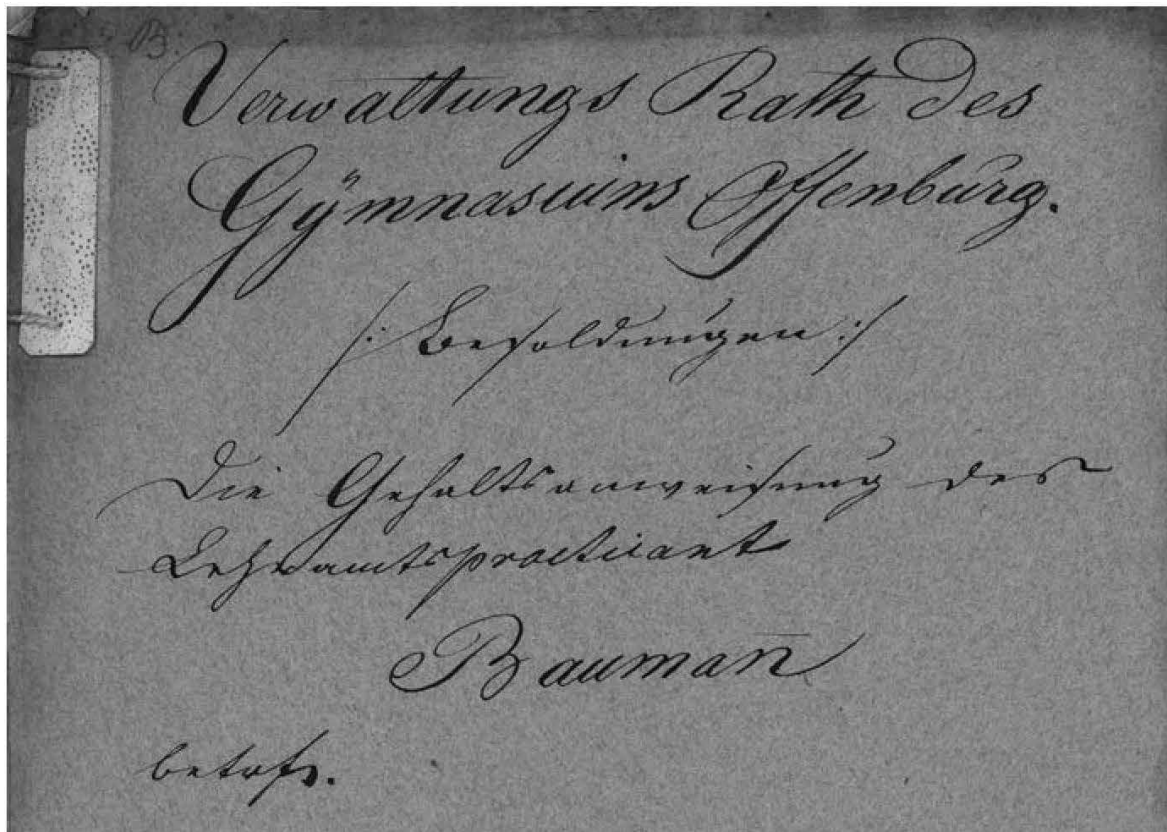 B.
Verwaltungs Rath des
Gÿmnasiums Offenburg.
/: Besoldungen :/
Die Gehaltsanweisung des
Lehramtspracticant
Bauman̅
betrf.